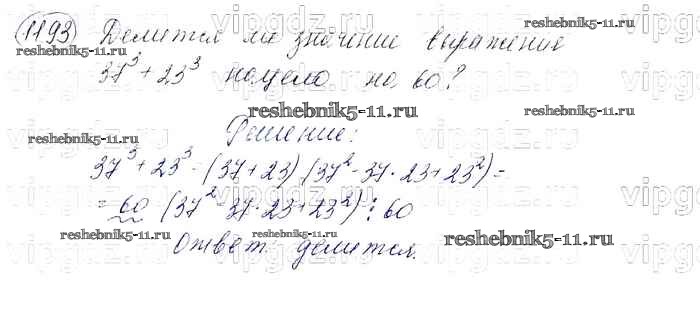 1193 Делится ли значение выражение
37³ + 23³ нацело на 60?
Решение:
37³ + 23³ = (37 + 23) (37² - 37 · 23 + 23²) =
= 60 (37² - 37 · 23 + 23²) ⋮ 60
Ответ: делится.
reshebnik5-11.ru
reshebnik5-11.ru
reshebnik5-11.ru
reshebnik5-11.ru
reshebnik5-11.ru
reshebnik5-11.ru
vipgdz.ru